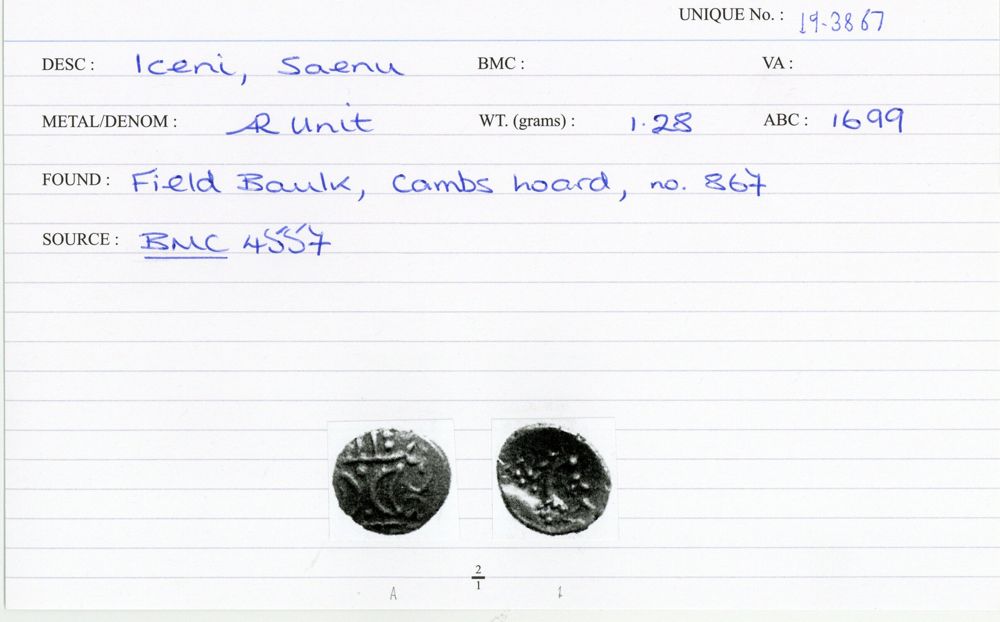 UNIQUE No. : 19-3867
DESC : Iceni, Saenu BMC : VA :
METAL/DENOM : AR Unit WT. (grams) : 1.28 ABC : 1699
FOUND : Field Baulk, Cambs hoard, no. 867
SOURCE : BMC 4557
2
1
A 1